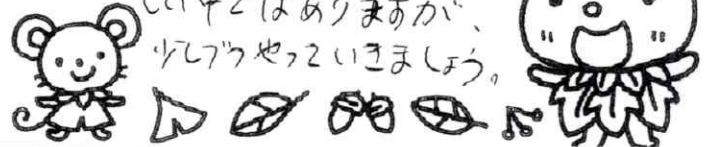 しい中とはありますが、
少しづつやっていきましょう。